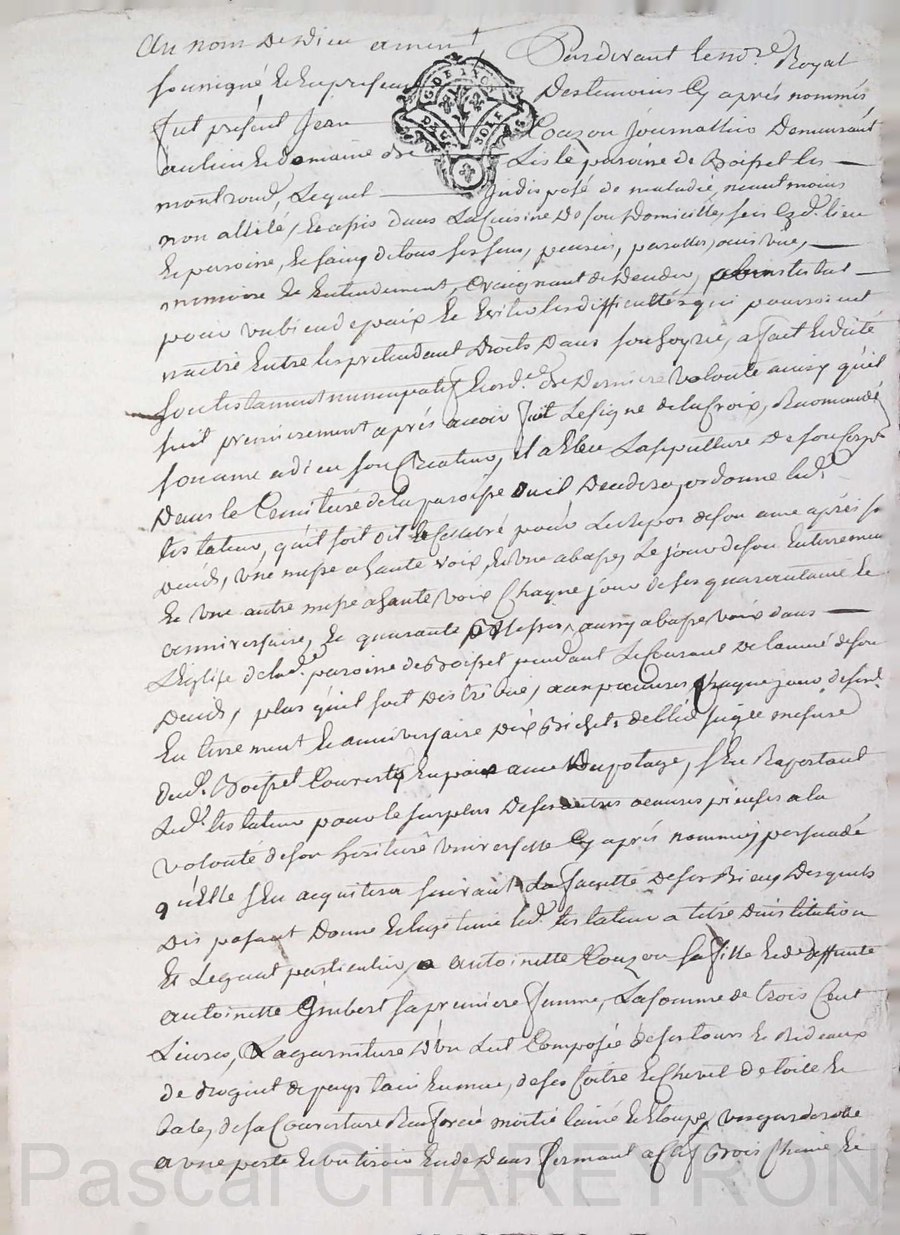 Au nom de Dieu amen! Pardevant le no.re Royal
soussigné et en presence
G. DE LYON
DEUX SOLS
Des temoins Cy aprés nommés
fut présent Jean Couzon journallier Demeurant
au lieu et domaine de Lis le paroisse de Boisset les
montrond, Lequel indisposé de maladie, neantmoins
non allité, et assis dans La cuisine De son Domicille, sis Esd. lieu
et paroisse, et sain de tous ses sens, pensées, parolles, ouis vüe,
memoire et entendement, Craignant de Deceder, abintestat
pour vu bien de paix et Eviter les difficultés qui pouroient
naitre Entre les pretendant Droits Dans son hoyrie, a fait et dicté
son testament nuncupatif et ord.re de Derniere volonté ainsy qu'il
suit premierement aprés avoir fait Le signe de la Croix, Recomandé
son ame a dieu son Createur, il a Eleu La sepulture De son Corps
Dans le Cemitiere de la paroisse ou il Decedera, ordonne led.
testateur, qu'il soit dit et Celebré pour Le Repos de son ame aprés so
deceds, vne messe a haute voix, et vne a basse, Le jour de son Enterremen
et vne autre messe a haute voix Chaque jour de ses quarantaine et
anniversaire, et quarante messes, aussy a basse voix dans
L'Eglise de lad. paroisse de Boisset pendant Le Courant De l'année de son
Deceds, plus qu'il soit distribué, aux pauvres Chaque jour de sesd.
Enterrement et anniversaire Dix Bichets de bled seigle mesure
dud. Boisset Convertis En pain avec du potage, s'En Raportant
led. testateur pour le surplus De ses autres oeuvres pieuses a la
volonté de son heritiere vniverselle Cy aprés nommée, persuadé
qu'Elle s'En acquitera suivant La faculté De ses Biens Desquels
Disposant Donne et Legue led. testateur a titre D'institution
Et Legat particulier, a antoinette Couzon sa fille et de deffunte
antoinette Gimbert sa premiere femme, La somme de trois Cent
Livres, La garniture d'vn Lit Composée de ses tours et Rideaux
de droguet de pays, de ses Coitre et Chevet de toile et
, de sa Couverture moitié laine et Etoupe, vn garderobe
a vne porte et vn tiroir En de Dans fermant a Clef Bois Chaine et
Pascal CHAREYRON